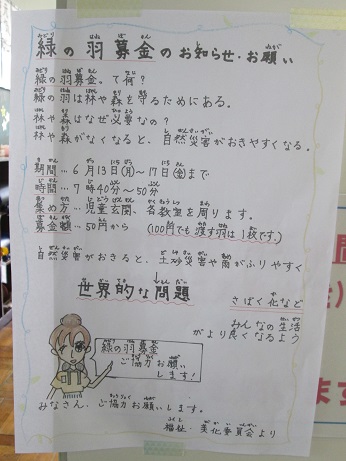 緑の羽募金のお知らせ・お願い
緑の羽募金。て何?
緑の羽は林や森を守るためにある。
林や森はなぜ必要なの?
林や森がなくなると、自然災害がおきやすくなる。
期間…6月13日(月)〜17日(金)まで
時間…7時40分〜50分
集め方…児童玄関、各教室を周ります。
募金額…50円から (100円でも渡す羽は1枚です。)
自然災害がおきると、土砂災害や雨がふりやすく
↓
世界的な問題
さばく化など
みんなの生活
がより良くなるよう
緑の羽募金
ご協力お願い
します!
みなさん、ご協力お願いします。
福祉・美化委員会より